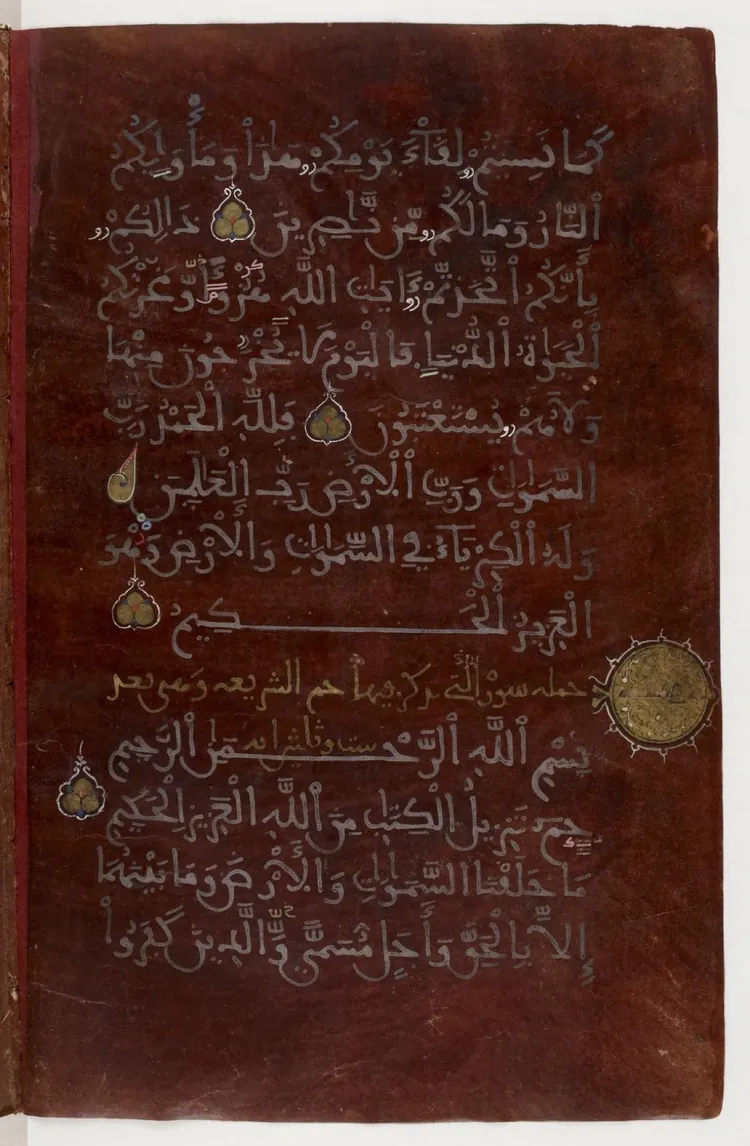 كَمَا نَسِيتُمْ لِقَآءَ يَوْمِكُمْ هَٰذَا وَمَأْوَيٰكُمُ
اَ۬لنَّارُ وَمَا لَكُم مِّن نَّٰصِرِينَ ذَٰالِكُم
بِأَنَّكُمُ اُ۪تَّخَذتُّمْ ءَايَٰتِ اِ۬للَّهِ هُزُؤاً وَغَرَّتْكُمُ
اُ۬لْحَيَوٰةُ اُ۬لدُّنْيَا فَالْيَوْمَ لَا يُخْرَجُونَ مِنْهَا
وَلَا هُمْ يُسْتَعْتَبُونَ فَلِلَّهِ اِ۬لْحَمْدُ رَبِّ
اِ۬لسَّمَٰوَٰاتِ وَرَبِّ اِ۬لْأَرْضِ رَبِّ اِ۬لْعَٰلَمِينَ
وَلَهُ اُ۬لْكِبْرِيَآءُ فِي اِ۬لسَّمَٰوَٰاتِ وَالْأَرْضِ وَهُوَ
اَ۬لْعَزِيزُ اُ۬لْحَكِيمُ
حم الشريعه وهي
بِسْمِ اِ۬للَّهِ اِ۬لرَّحْمَٰنِ اِ۬لرَّحِيمِ
ست وثلثين ايه
حمٓ تَنزِيلُ اُ۬لْكِتَٰبِ مِنَ اَ۬للَّهِ اِ۬لْعَزِيزِ اِ۬لْحَكِيمِ
مَا خَلَقْنَا اَ۬لسَّمَٰوَٰاتِ وَالْأَرْضَ وَمَا بَيْنَهُمَا
إِلَّا بِالْحَقِّ وَأَجَلٍ مُّسَمًّى وَالَّذِينَ كَفَرُواْ